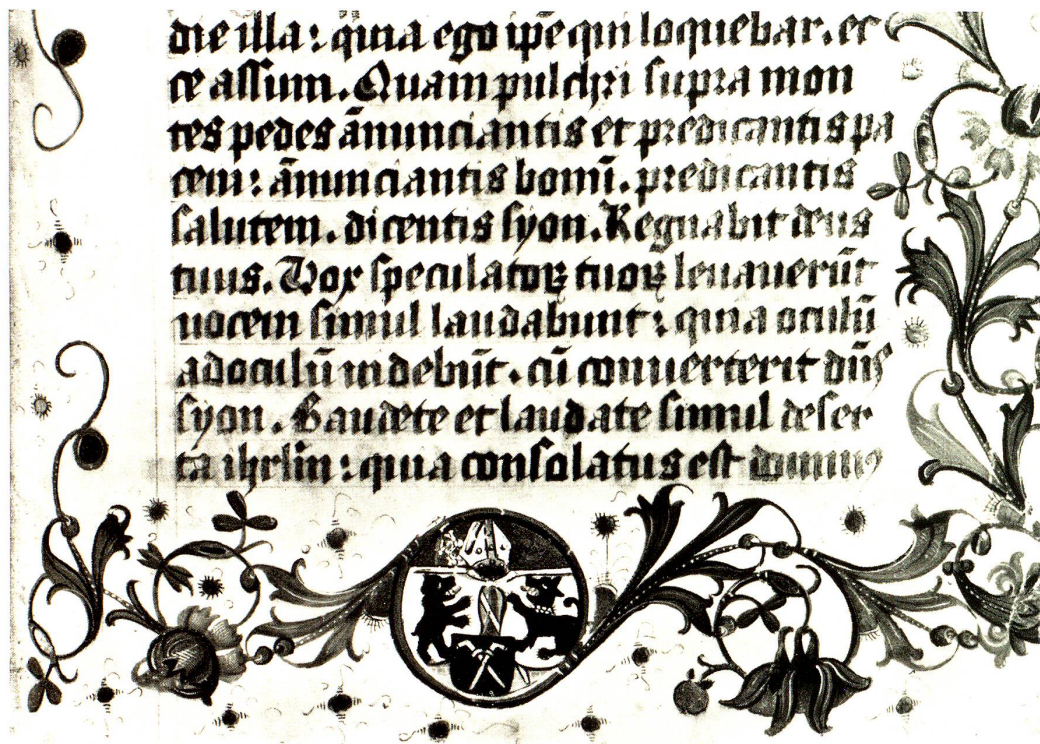 die illa : quia ego ip̄e qui loquebar. ec
ce assum. Quam pulchri supra mon
tes pedes ānunciantis et predicantis pa
cem : ānunciantis bonū. predicantis
salutem. dicentis syon. Regnabit deus
tuus. Vox speculatoꝝ tuoꝝ leuauerūt
uocem simul laudabunt : quia oculū
ad oculū uidebūt. cū conuerterit dn̄s
syon. Gaudete et laudate simul deser
ta ihrlm̄ : quia consolatus est dominus